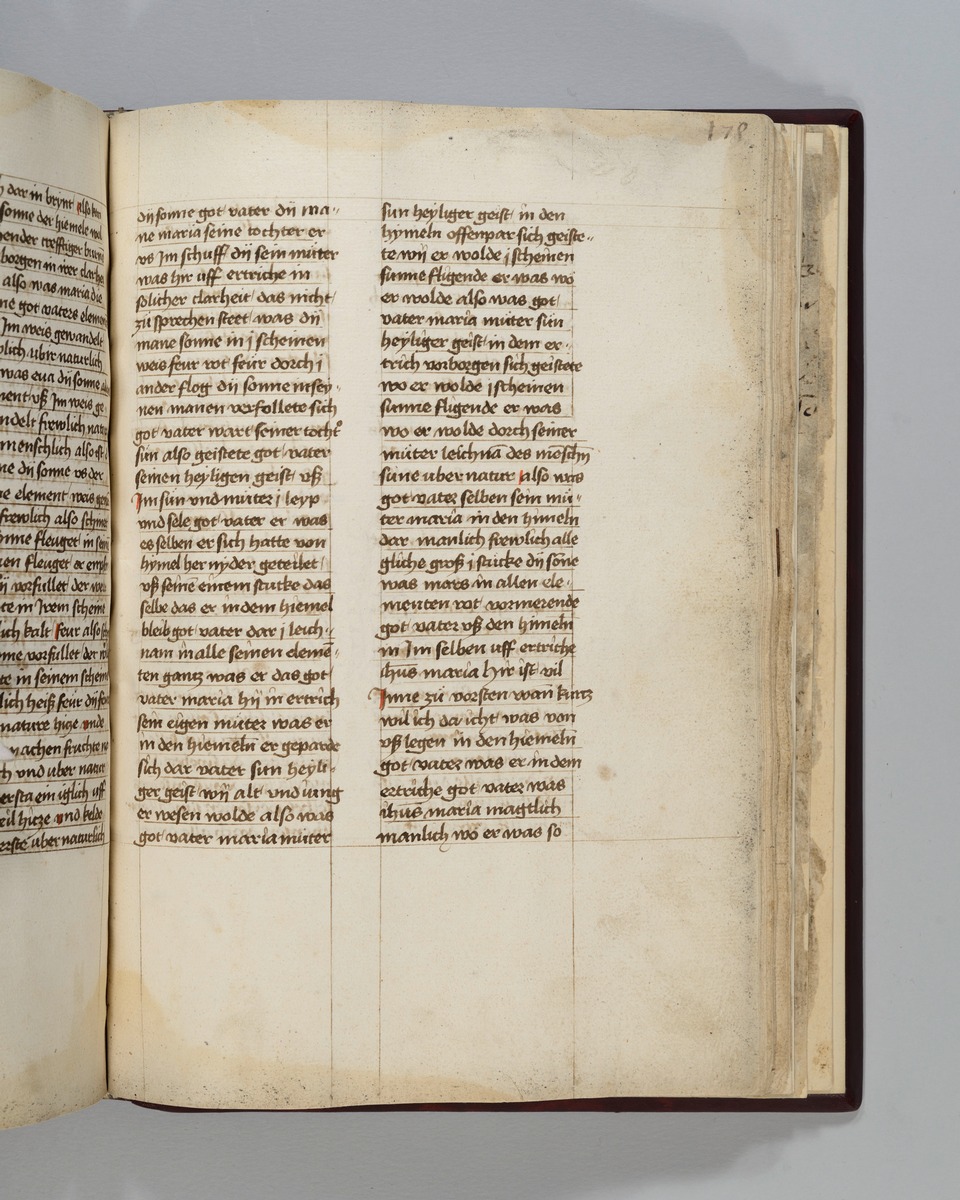 dar in brynt also
sonne der hiemele
hender trefftiger
borgen in irer clarheit
also was maria die
ne got vaters element
Im weis gewandelt
plich ubir naturlich
was eva dij sonne
ment uß Im weis ge
ndelt frewlich natur
menschlich also
ne dij sonne us der
ne element weis
frewlich also
onne fleuget in
fleuget
ij vorfullet der
te in Irem schein
lich kalt feur also
nne vorfullet der
te in seinem schein
lich heiß feur dij
nature hicze vnde
machen fruchte
ch vnd uber natur
ersta ein iglich uff
hicze vnd kelde
erste ubernaturlich
178
dij sonne got vater dij ma-
ne maria seine tochter er
us Im schuff dij sein muter
was hir uff ertriche in
solicher clarheit das nicht
zu sprechen steet was dij
mane sonne in j scheinen
weis feur rot feur dorch j
ander flog dij sonne in sey-
nen manen verfollete sich
got vater wart seiner tocht
sun also geistete got vater
seinen heyligen geist uß
Im sun vnd muter j leyp
vnd sele got vater er was
es selben er sich hatte von
hymel her nyder geteilet
uß seinē einem stucke das
selbe das er in dem hiemel
bleib got vater dar j leich-
nam in alle seinen elemē-
ten gantz was er das got
vater maria hij in ertrich
sein eigen muter was er
in den hiemeln er geparde
sich dar vater sun heyli-
ger geist wij alt vnd iung
er wesen wolde also was
got vater maria muter
sun heyliger geist in den
hymeln offenpar sich geiste-
te wij er wolde j scheinen
sunne fligende er was wo
er wolde also was got
vater maria muter sun
heyliger geist in dem er-
trich vorborgen sich geistete
wo er wolde j scheinen
sunne fligende er was
wo er wolde dorch seiner
muter leichnā des menschn
sune uber natur also was
got vater selben sein mu-
ter maria in den himeln
dar manlich frewlich alle
gliche groß j stucke dij sone
was mars in allen ele-
menten rot vormerende
got vater uß den himeln
in Im selben uff ertriche
ihus maria hir ist vil
Inne zu vorsten wan kurtz
wil ich da icht was von
uß legen in den hiemeln
got vater was er in dem
ertriche got vater was
ihus maria magtlich
manlich wo er was so